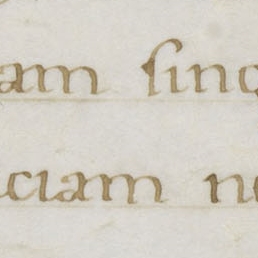 am ſing
ciam ne